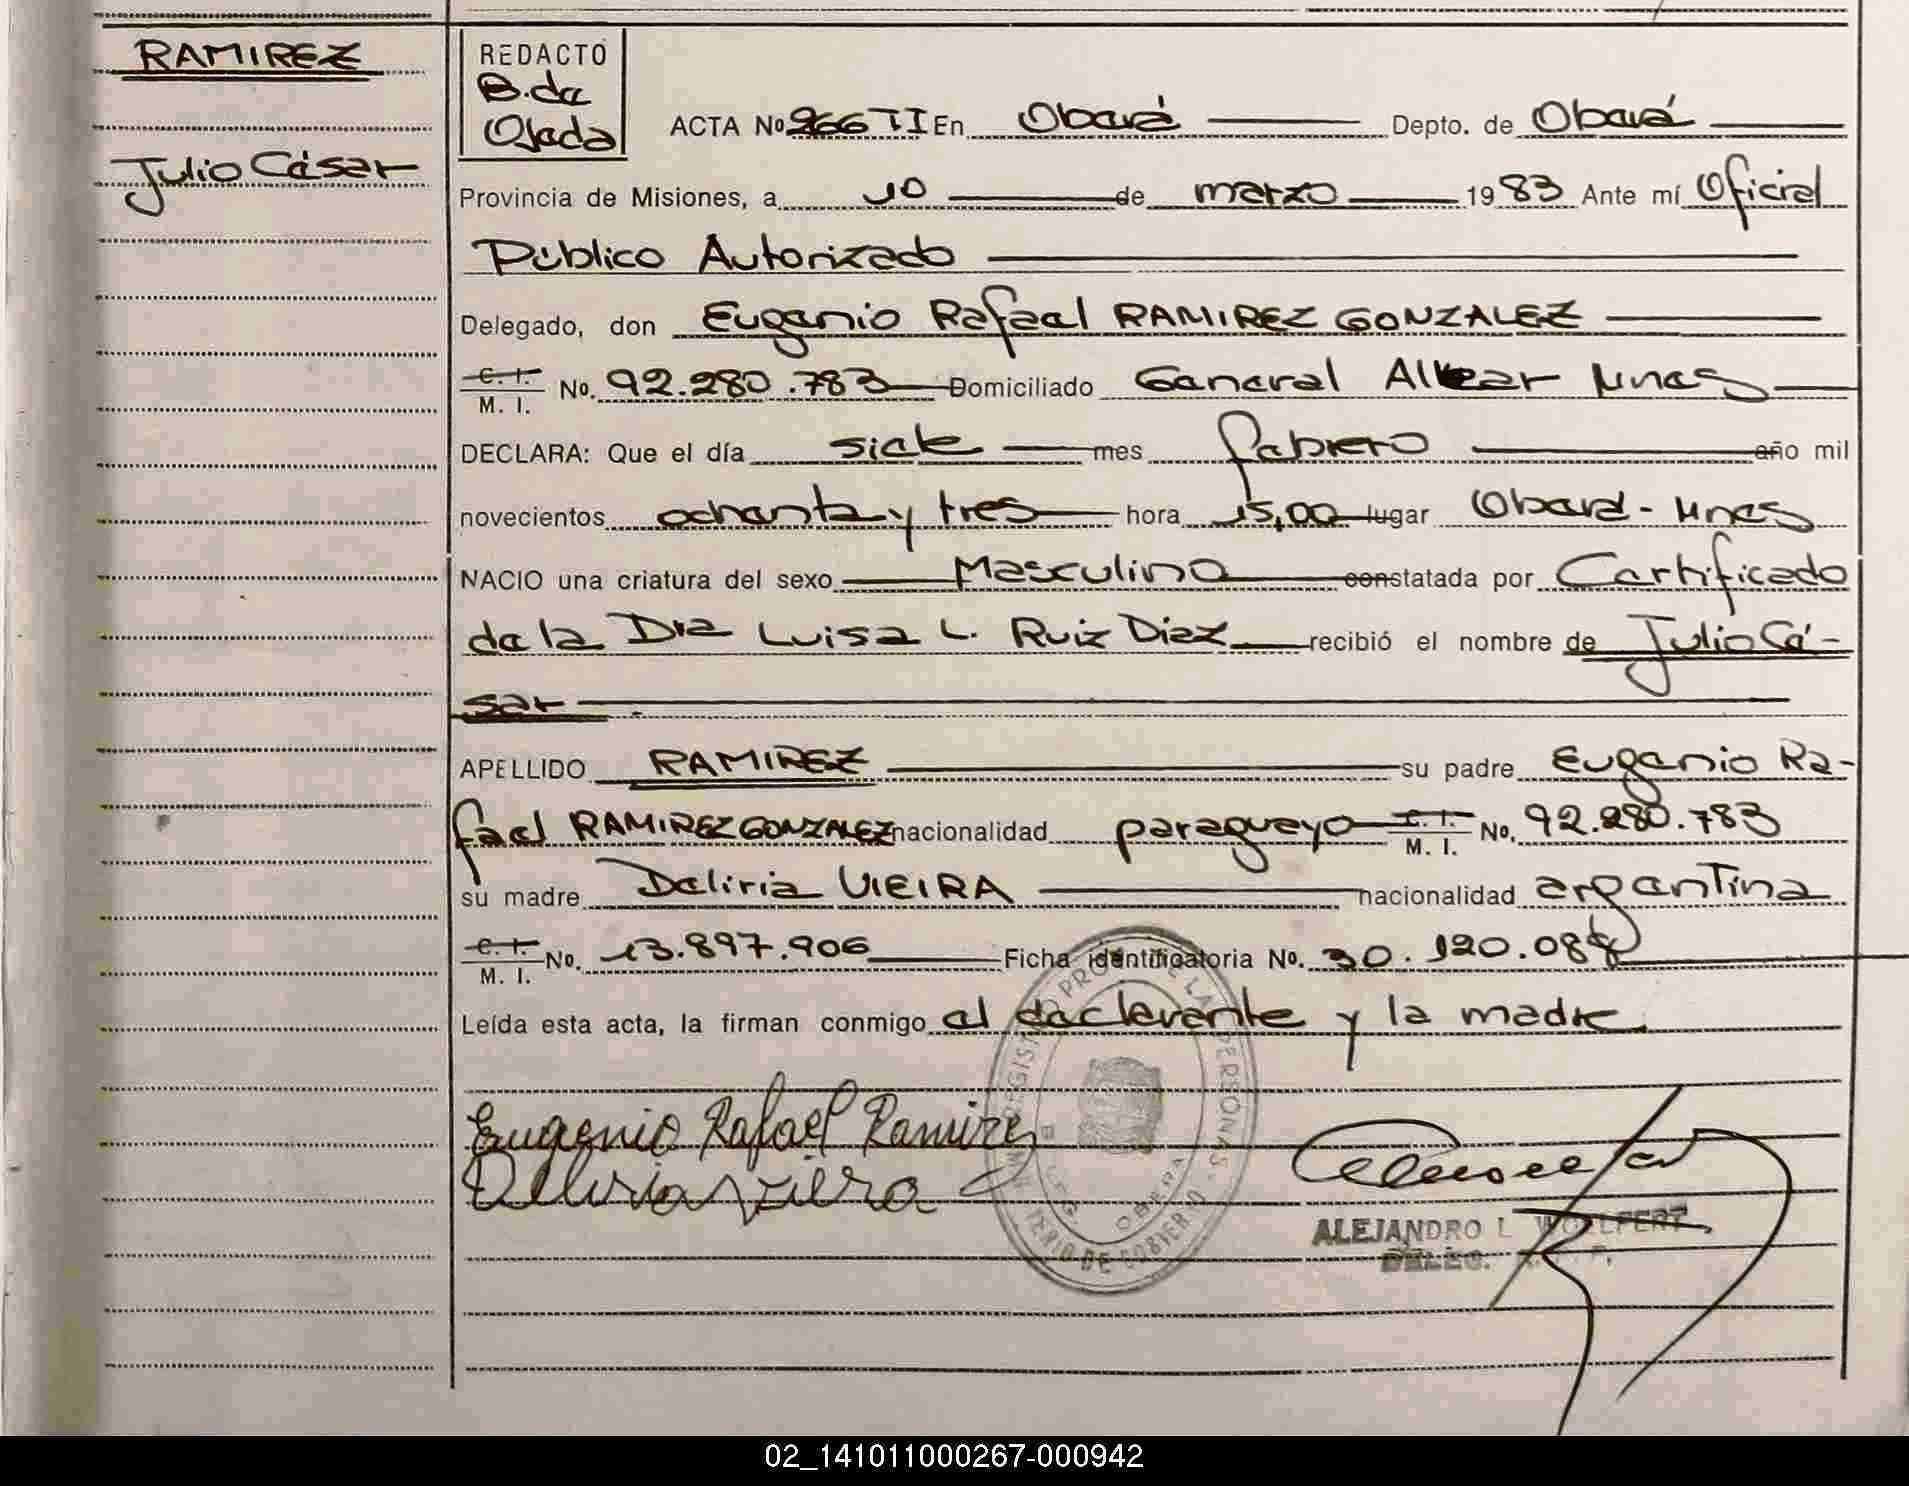 RAMIREZ
Julio César
REDACTO
B. de
Ojeda
ACTA No 266 TI En Oberá Depto. de Oberá
Provincia de Misiones, a 10 de marzo 1983 Ante mí Oficial
Público Autorizado
Delegado, don Eugenio Rafael RAMIREZ GONZALEZ
C. I.
M. I. No. 92.280.783 Domiciliado General Alvear Mnes
DECLARA: Que el día siete mes febrero año mil
novecientos ochenta y tres hora 15,00 lugar Oberá - Mnes
NACIO una criatura del sexo Masculino constatada por Certificado
de la Dra Luisa L. Ruiz Diaz recibió el nombre de Julio Cé-
sar
APELLIDO RAMIREZ su padre Eugenio Ra-
fael RAMIREZ GONZALEZ nacionalidad paraguayo C. I. M. I. No. 92.280.783
su madre Deliria VIEIRA nacionalidad argentina
C. I.
M. I. No. 13.897.906 Ficha identificatoria No. 30.120.08
Leída esta acta, la firman conmigo el declarante y la madre
Eugenio Rafael Ramirez
Deliria Vieira
REGISTRO PROV. DE LAS PERSONAS
MINISTERIO DE GOBIERNO
DELEG. OBERA
ALEJANDRO L. WOLLFERT
DELEG. R. P.
02_141011000267-000942